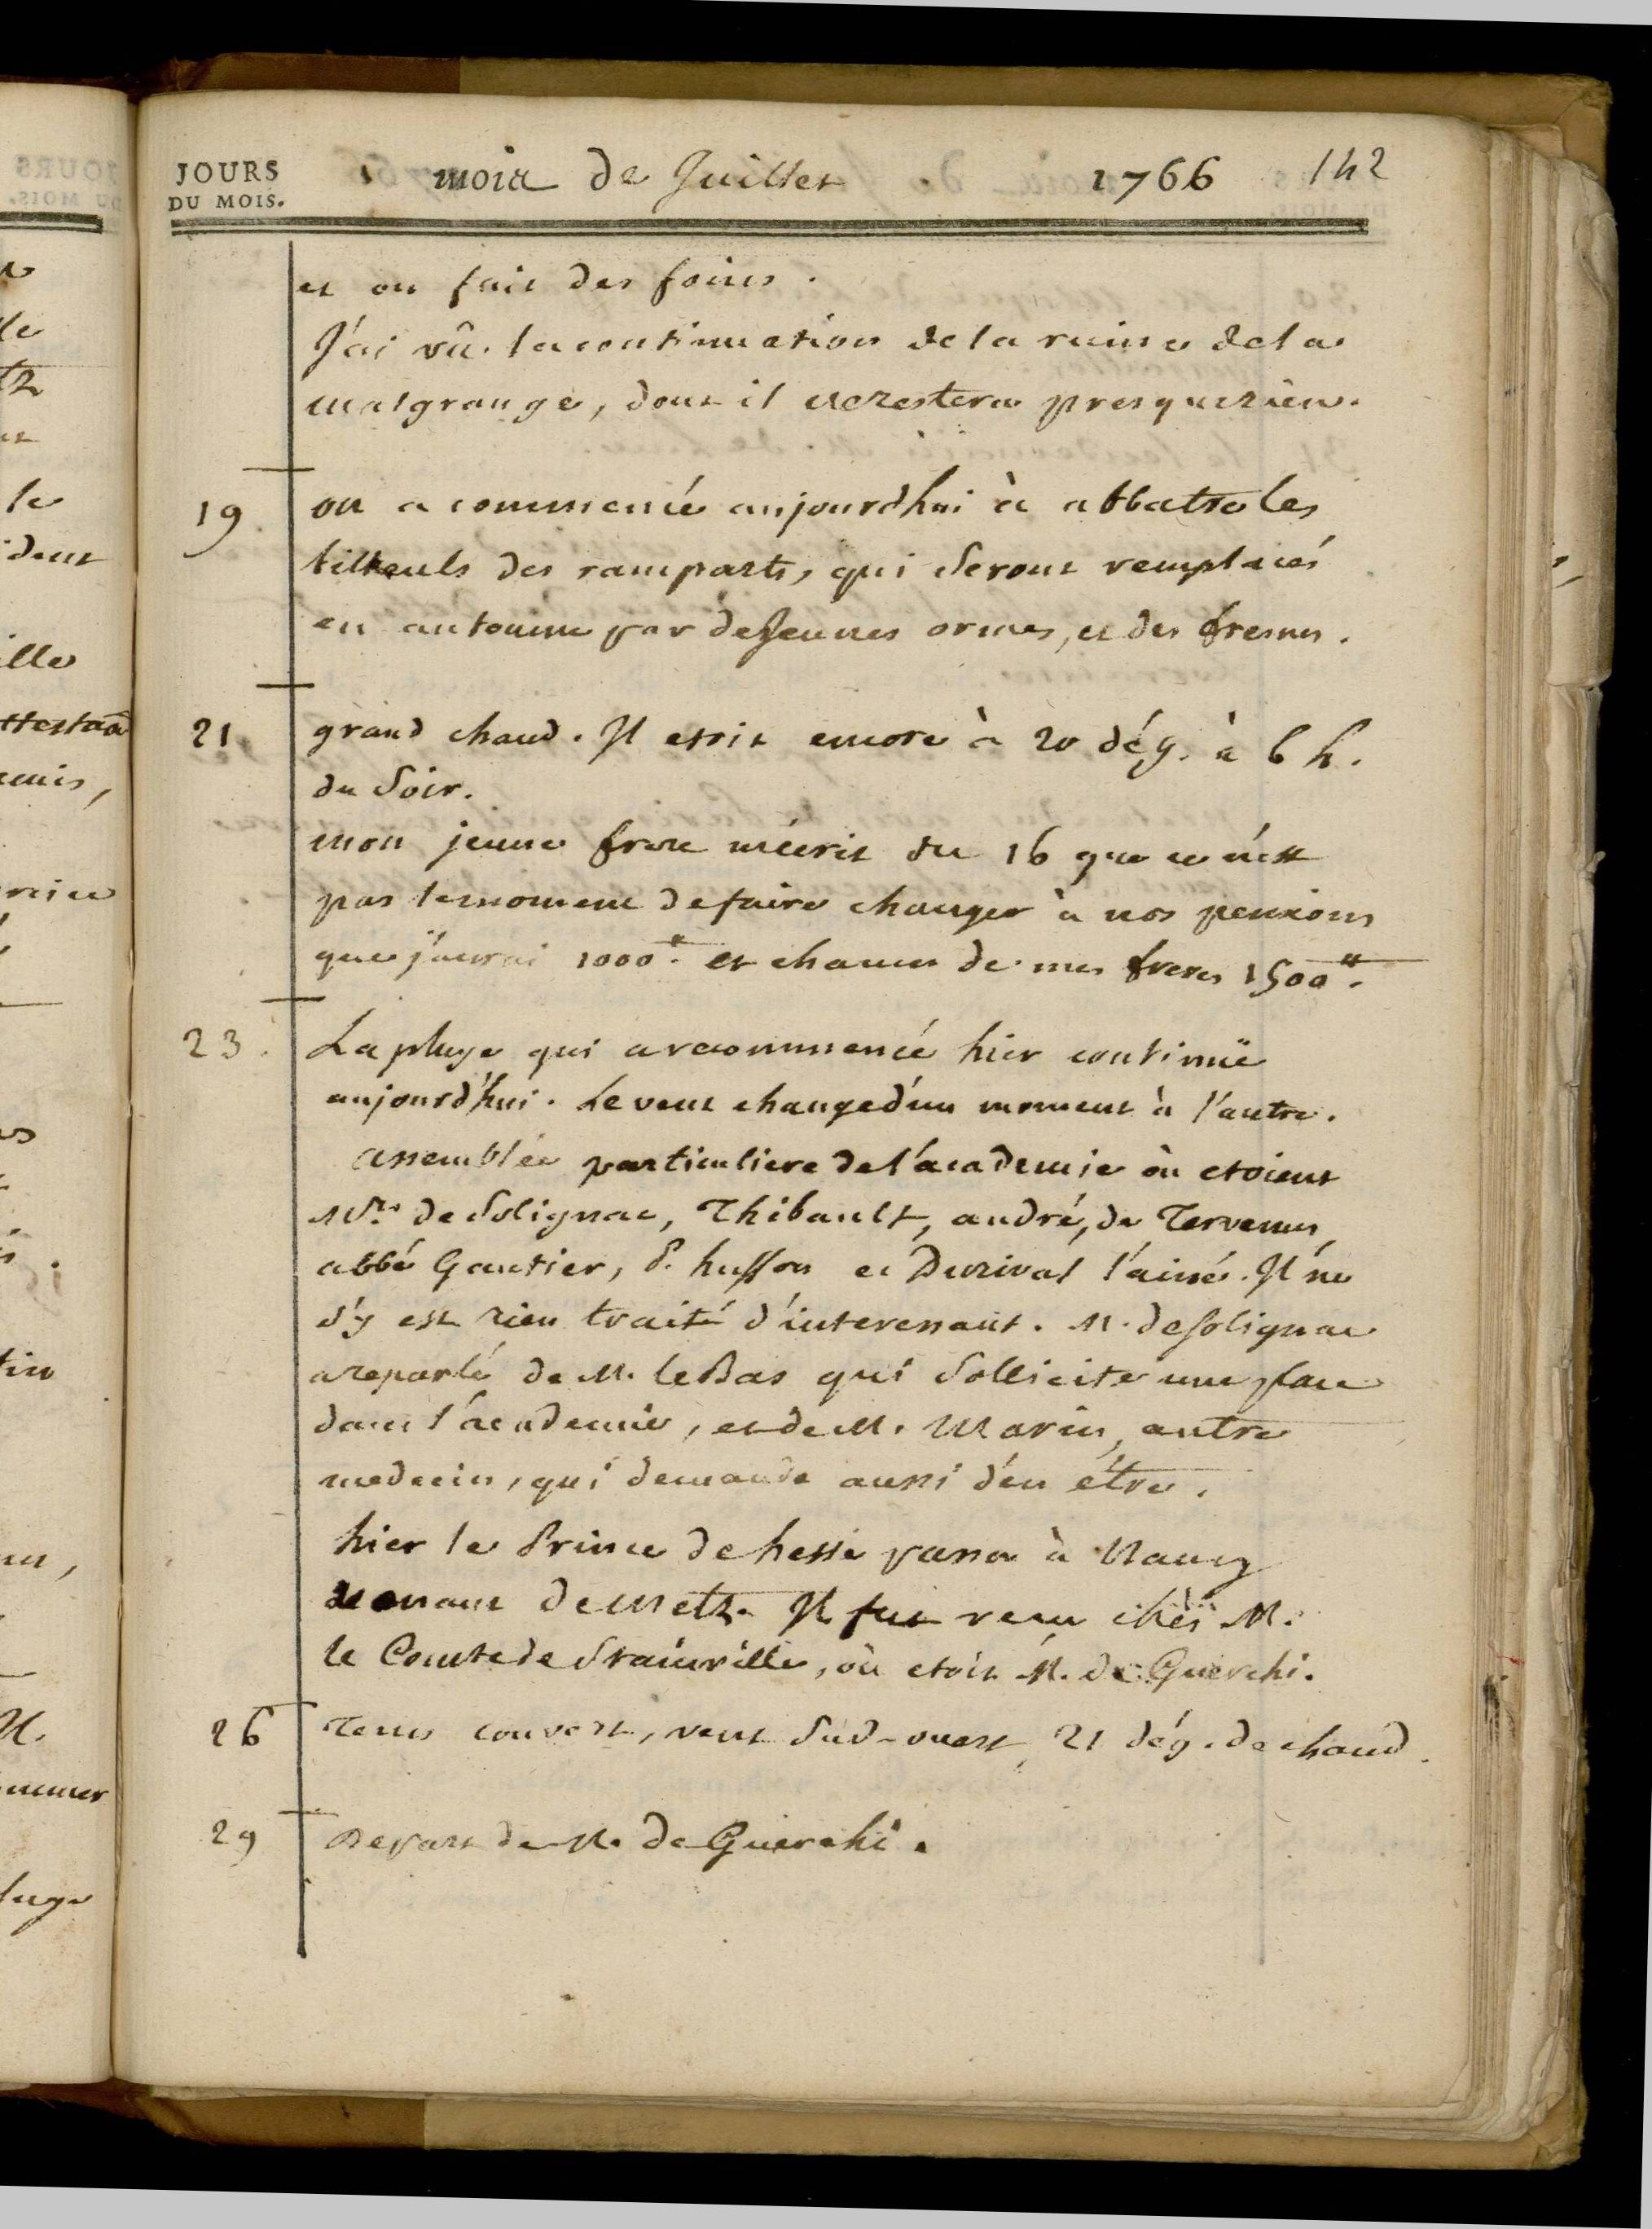 JOURS
DU MOIS.
mois de Juillet 1766 142
et on fait des foins.
J'ai vû la continuation de la ruine de la
malgrange, dont il ne restera presque rien.
19 on a commencé aujourdhui à abbatre les
tilleuls des ramparts, qui seront remplacés
en automne par de jeunes ormes, et des fresnes.
21 grand chaud. Il etoit encore à 20 dég. à 6 h.
du soir.
mon jeune frere m'écrit du 16 que ce n'est
pas le moment de faire changer à nos pensions
que j'aurai 1000.# et chacun de mes freres 1500.#
23. La pluye qui a recommencé hier continuë
aujourd'hui. Le vent change d'un moment à l'autre.
assemblée particuliere de l'academie où etoient
Mrs. de Solignac, Thibault, andré, de Tervenus,
abbé Gautier, P. husson et Durival l'ainé. Il ne
s'y est rien traité d'interessant. M. de Solignac
a reparlé de M. le Bas qui sollicite une place
dans l'academie, et de M. Marin, autre
medecin, qui demande aussi d'en être.
hier le Prince de hesse passa à Nancy
venant de Metz. Il fut reçu chés M.
le Comte de Stainville, où etoit M. de Guerchi.
26 Tems couvert, vent sud-ouest, 21 dég. de chaud.
29 Depart de M. de Guerchi.